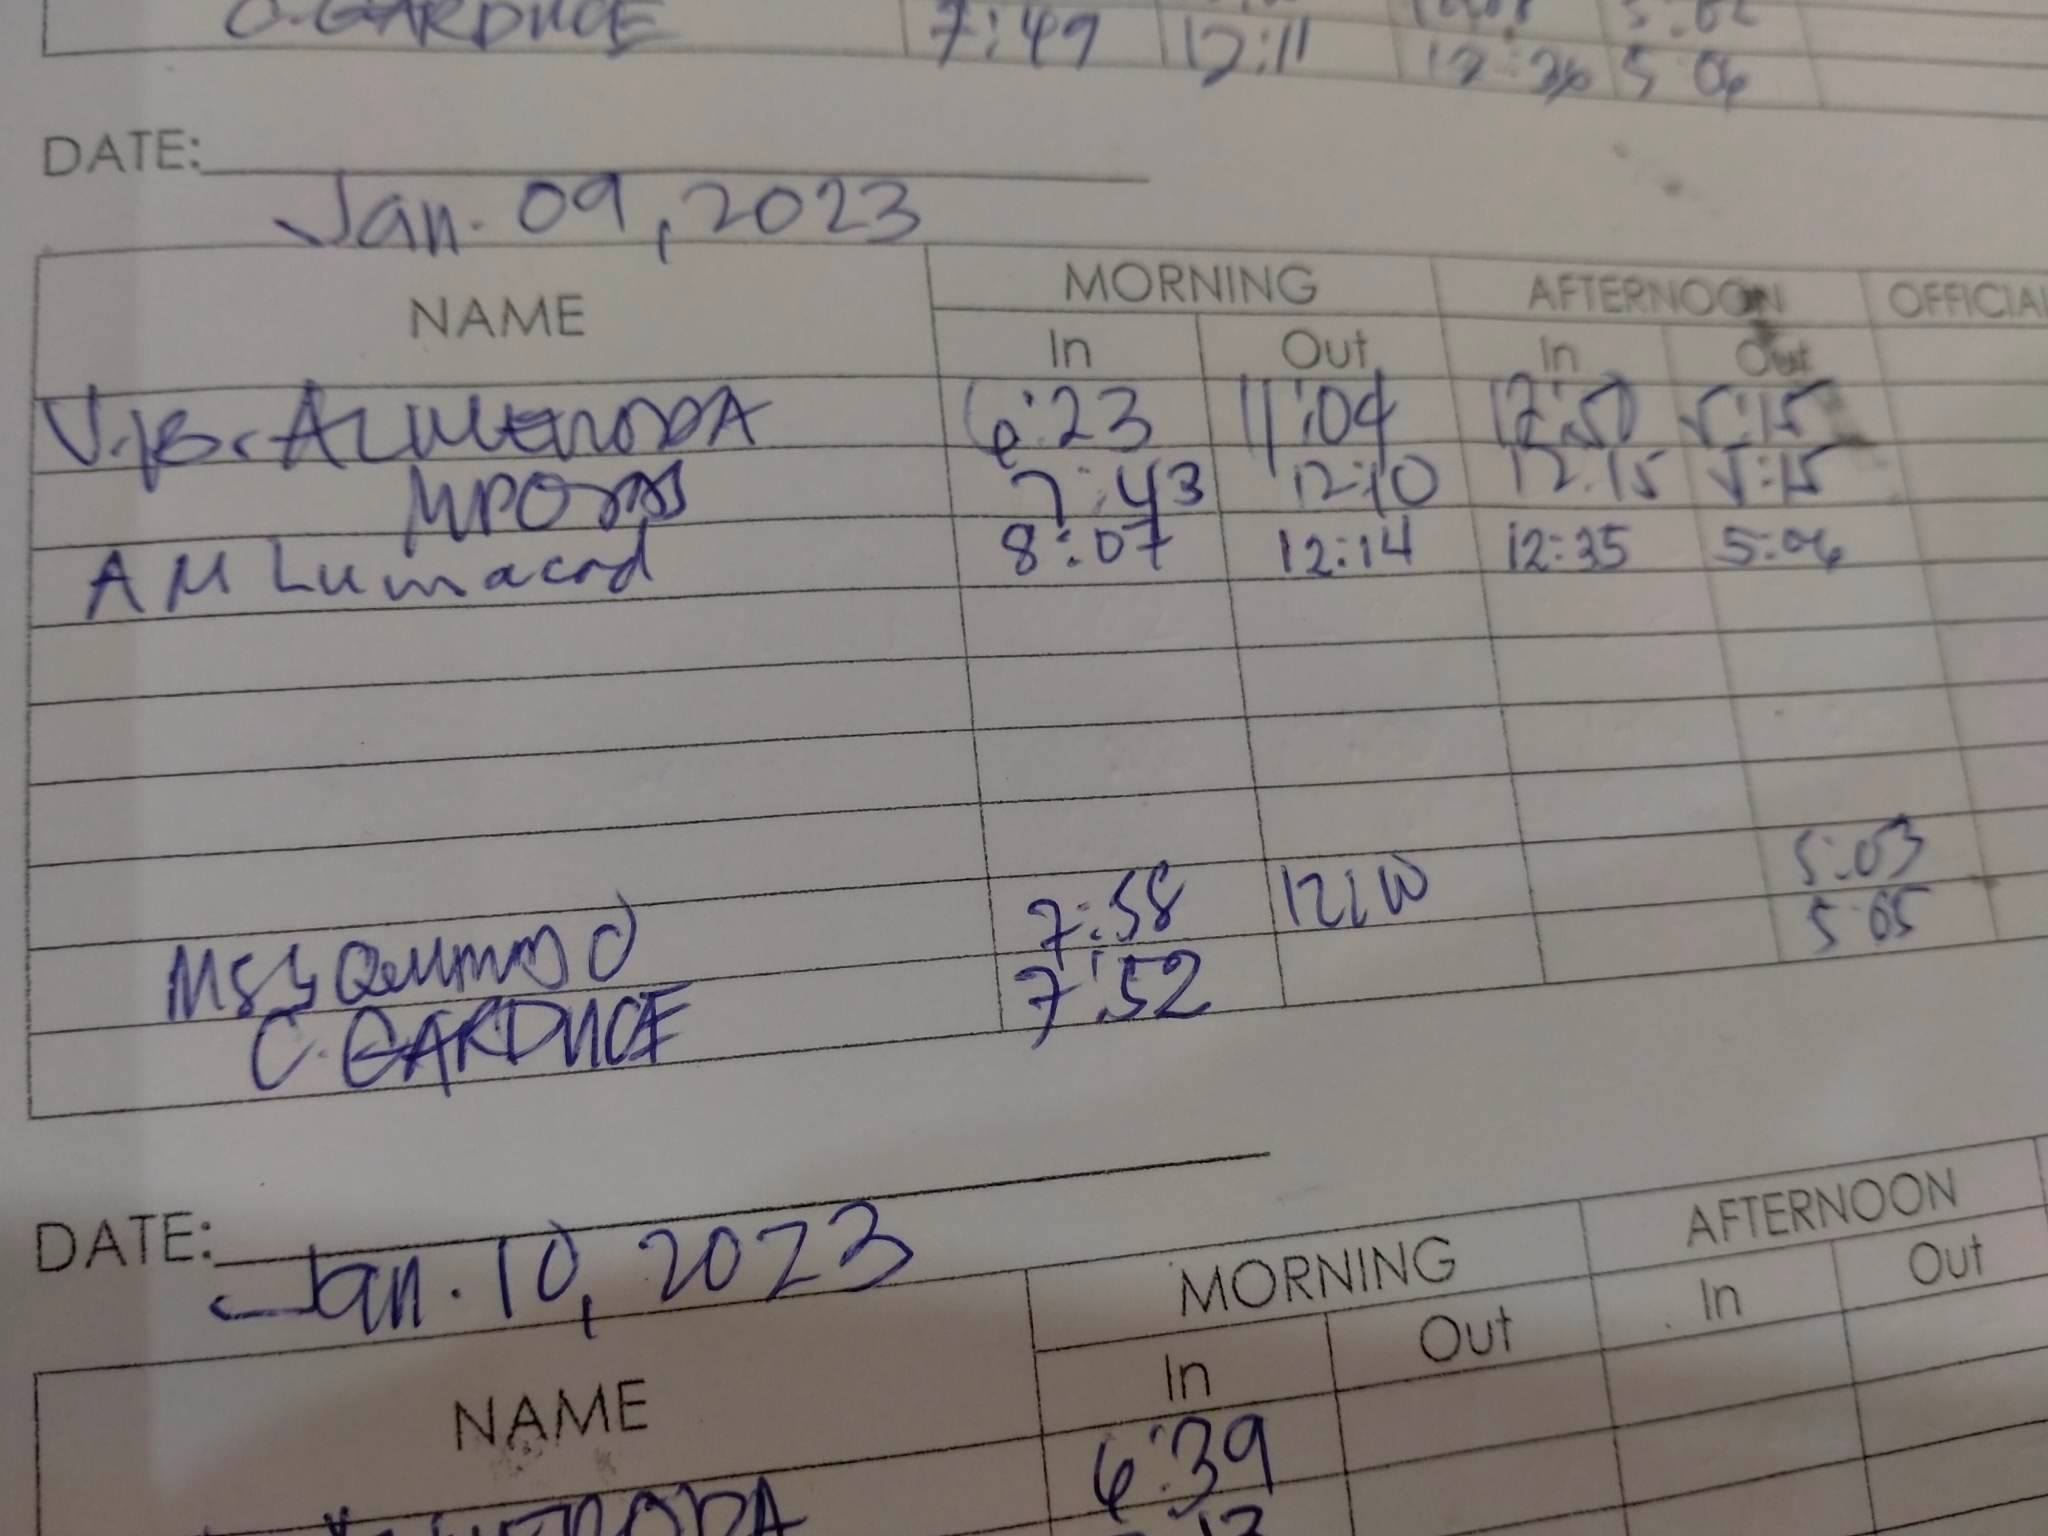 C. GARDUCE 7:49 12:11 12:36 5:06
DATE:
Jan. 09, 2023
NAME MORNING AFTERNOON OFFICIAL
In Out In Out
V.B. ALMENODRA 6:23 11:04 12:50 5:15
7:43 12:10 12:15 5:15
A M Lumacad 8:07 12:14 12:35 5:06
7:58 12:10 5:03
C. GARDUCE 7:52 5:05
DATE:
Jan. 10, 2023
NAME MORNING AFTERNOON
In Out In Out
6:39